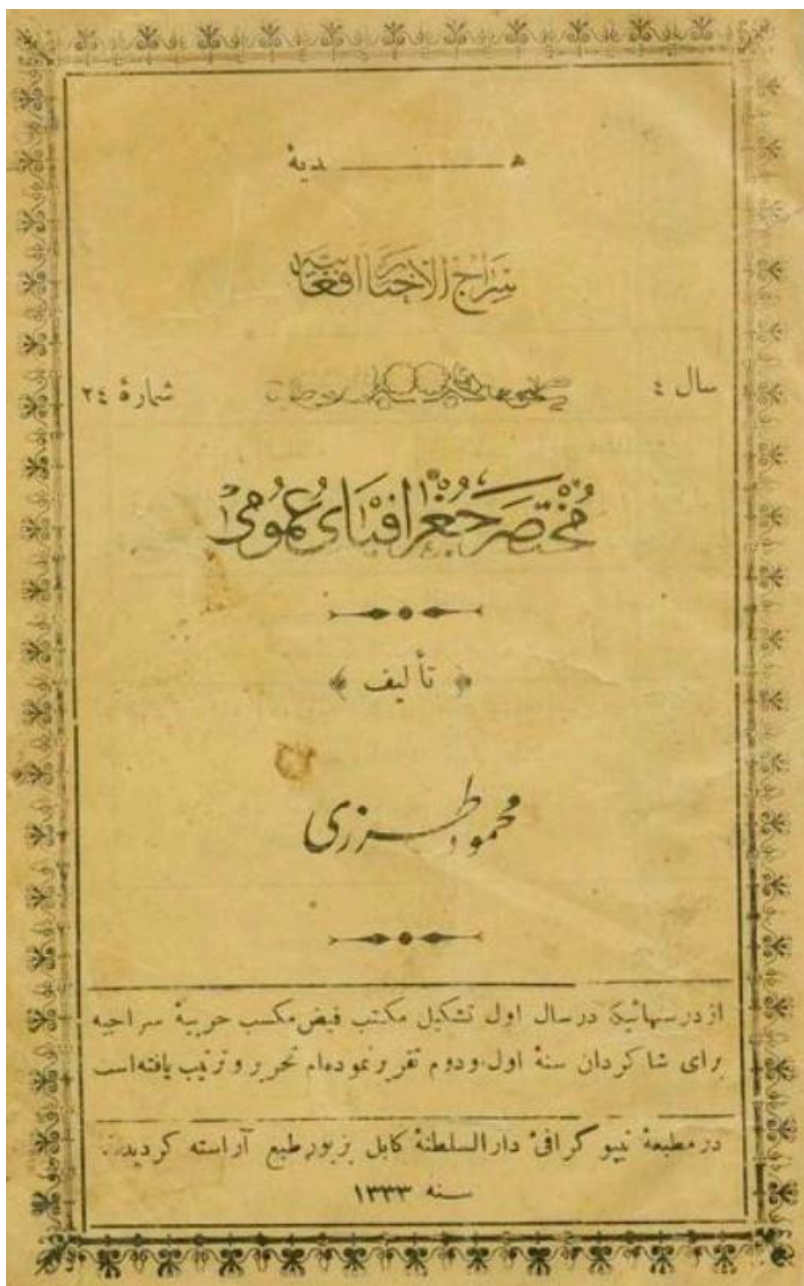 هدیهٔ
سراج الاخبار افغانیه
سال ٤
شمارهٔ ٢٤
مُختصر جُغرافیای عُمُومی
﴿ تألیف ﴾
محمود طرزی
از درسهائیکه در سال اول تشکیل مکتب فیض مکسب حربیهٔ سراجیه
برای شاکردان سنهٔ اول و دوم تقریر نموده‌ام تحریر و ترتیب یافته است
در مطبعهٔ تیپو گرافیٔ دارالسلطنهٔ کابل بزیور طبع آراسته کردید
سنه ١٣٣٣